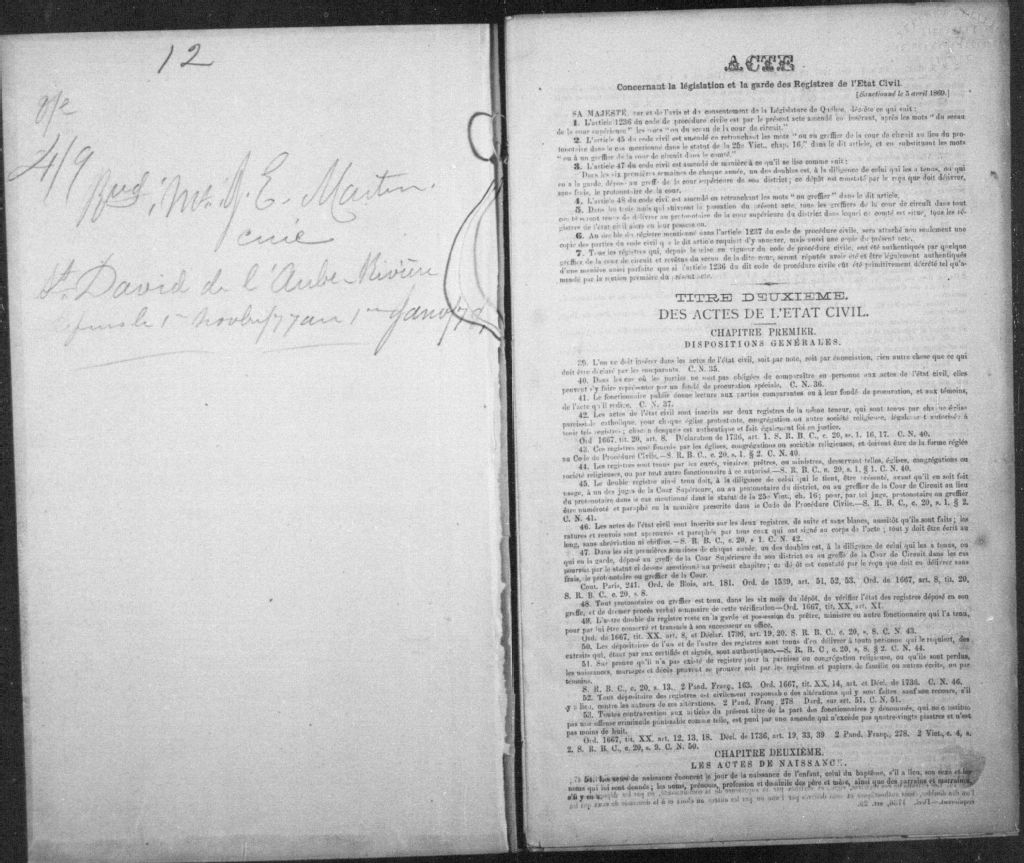 12
4/9
Revd Mr. E. Martin
curé
St. David de l'Aube-Rivière
ACTE
Concernant la législation et la garde des Registres de l'Etat Civil.
[Sanctionné le 5 avril 1869.]
SA MAJESTÉ, par et de l'avis et du consentement de la Législature de Québec, décrète ce qui suit:
1. L'article 1236 du code de procédure civile est par le présent acte amendé en insérant, après les mots "du sceau
de la cour supérieure" les mots "ou du sceau de la cour de circuit."
2. L'article 45 du code civil est amendé en retranchant les mots "ou au greffier de la cour de circuit au lieu du pro-
tonotaire dans le cas mentionné dans le statut de la 25e Vict., chap. 16," dans le dit article, et en substituant les mots
"ou à un greffier de la cour de circuit dans le comté."
3. L'article 47 du code civil est amendé de manière à ce qu'il se lise comme suit:
Dans les six premières semaines de chaque année, un des doubles est, à la diligence de celui qui les a tenus, ou qui
en a la garde, déposé au greffe de la cour supérieure de son district; ce dépôt est constaté par le reçu que doit délivrer,
sans frais, le protonotaire de la cour.
4. L'article 48 du code civil est amendé en retranchant les mots "ou greffier" dans le dit article.
5. Dans les trois mois qui suivront la passation du présent acte, tous les greffiers de la cour de circuit dans tout
comté seront tenus de délivrer au protonotaire de la cour supérieure du district dans lequel ce comté est situé, tous les ré-
gistres de l'état civil alors en leur possession.
6. Au double du régistre mentionné dans l'article 1237 du code de procédure civile, sera attaché non seulement une
copie des parties du code civil que le dit article requiert d'y annexer, mais aussi une copie du présent acte.
7. Tous les régistres qui, depuis la mise en vigueur du code de procédure civile, ont été authentiqués par quelque
greffier de la cour de circuit et revêtus du sceau de la dite cour, seront réputés avoir été et être légalement authentiqués
d'une manière aussi parfaite que si l'article 1236 du dit code de procédure civile eût été primitivement décrété tel qu'a-
mendé par la section première du présent acte.
TITRE DEUXIEME.
DES ACTES DE L'ETAT CIVIL.
CHAPITRE PREMIER.
DISPOSITIONS GENÉRALES.
39. L'on ne doit insérer dans les actes de l'état civil, soit par note, soit par énonciation, rien autre chose que ce qui
doit être déclaré par les comparants. C. N. 35.
40. Dans les cas où les parties ne sont pas obligées de comparaître en personne aux actes de l'état civil, elles
peuvent s'y faire représenter par un fondé de procuration spéciale. C. N. 36.
41. Le fonctionnaire public donne lecture aux parties comparantes ou à leur fondé de procuration, et aux témoins,
de l'acte qu'il rédige. C. N. 37.
42. Les actes de l'état civil sont inscrits sur deux registres de la même teneur, qui sont tenus par chaque église
paroissiale catholique, pour chaque église protestante, congrégation ou autre société religieuse, légalement autorisée à
tenir tels registres; chacun desquels est authentique et fait également foi en justice.
Ord 1667, tit. 20, art. 8. Déclaration de 1736, art. 1. S. R. B. C., c. 20, ss. 1, 16, 17. C. N. 40.
43. Ces registres sont fournis par les églises, congrégations ou sociétés religieuses, et doivent être de la forme réglée
au Code de Procédure Civile.—S. R. B. C., c. 20, s. 1. § 2. C. N. 40.
44. Les registres sont tenus par les curés, vicaires, prêtres, ou ministres, desservant telles, églises, congrégations ou
société religieuses, ou par tout autre fonctionnaire à ce autorisé.—S. R. B. C., c. 20, s. 1, § 1. C. N. 40.
45. Le double registre ainsi tenu doit, à la diligence de celui qui le tient, être présenté, avant qu'il en soit fait
usage, à un des juges de la Cour Supérieure, ou au protonotaire du district, ou au greffier de la Cour de Circuit au lieu
du protonotaire dans le cas mentionné dans le statut de la 25e Vict., ch. 16; pour, par tel juge, protonotaire ou greffier
être numéroté et paraphé en la manière prescrite dans le Code de Procédure Civile.—S. R. B. C., c. 20, s. 1. § 2.
C. N. 41.
46. Les actes de l'état civil sont inscrits sur les deux registres, de suite et sans blancs, aussitôt qu'ils sont faits; les
ratures et renvois sont approuvés et paraphés par tous ceux qui ont signé au corps de l'acte; tout y doit être écrit au
long, sans abréviation ni chiffres.—S. R. B. C., c. 20, s 1. C. N. 42.
47. Dans les six premières semaines de chaque année, un des doubles est, à la diligence de celui qui les a tenus, ou
qui en la garde, déposé au greffe de la Cour Supérieure de son district ou au greffe de la Cour de Circuit dans les cas
pourvus par le statut ci dessus mentionné au présent chapitre; ce dépôt est constaté par le reçu que doit en délivrer sans
frais, le protonotaire ou greffier de la Cour.
Cout. Paris, 241. Ord. de Blois, art. 181. Ord. de 1539, art. 51, 52, 53. Ord. de 1667, art. 8, tit. 20,
S. R. B. C., c. 20, s. 8.
48. Tout protonotaire ou greffier est tenu, dans les six mois du dépôt, de vérifier l'état des registres déposé en son
greffe, et de dresser procès verbal sommaire de cette vérification—Ord. 1667, tit. XX, art. XI.
49. L'autre double du registre reste en la garde et possession du prêtre, ministre ou autre fonctionnaire qui l'a tenu,
pour par lui être conservé et transmis à son successeur en office.
Ord. de 1667, tit. XX, art. 8, et Déclar. 1736, art. 19, 20. S. R. B. C., c. 20, s. 8. C. N. 43.
50. Les dépositaires de l'un et de l'autre des registres sont tenus d'en délivrer à toute personne qui le requiert, des
extraits qui, étant par eux certifiés et signés, sont authentiques.—S. R. B. C, c. 20, s. 8, § 2. C. N. 44.
51. Sur preuve qu'il n'a pas existé de registre pour la paroisse ou congrégation religieuse, ou qu'ils sont perdus,
les naissances, mariages et décès peuvent se prouver soit par les registres et papiers de famille ou autres écrits, ou par
témoins.
S. R. B. C., c. 20, s. 13. 2 Pand. Franç., 163. Ord. 1667, tit. XX, 14, art. et Décl. de 1736. C. N. 46.
52. Tout dépositaire des registres est civilement responsable des altérations qui y sont faites, sauf son recours, s'il
y a lieu, contre les auteurs de ces altérations. 2 Pand. Franç 278. Dard. sur art. 51. C. N. 51.
53. Toutes contravention aux articles du présent titre de la part des fonctionnaires y dénommés, qui ne constitue
pas une offense criminelle punissable comme telle, est puni par une amende qui n'excède pas quatre-vingts piastres et n'est
pas moins de huit.
Ord. 1667, tit. XX, art. 12, 13, 18. Décl. de 1736, art. 19, 33, 39. 2 Pand. Franç., 278. 2 Vict., c. 4, s.
2. S. R. B. C., c. 20, s. 9. C. N. 50.
CHAPITRE DEUXIÈME.
LES ACTES DE NAISSANCE.
54. Les actes de naissance énoncent le jour de la naissance de l'enfant, celui du baptême, s'il a lieu, son sexe et les
noms qui lui sont donnés; les noms, prénoms, profession et domicile des père et mère, ainsi que des parrains et marraines,
s'il y en a.